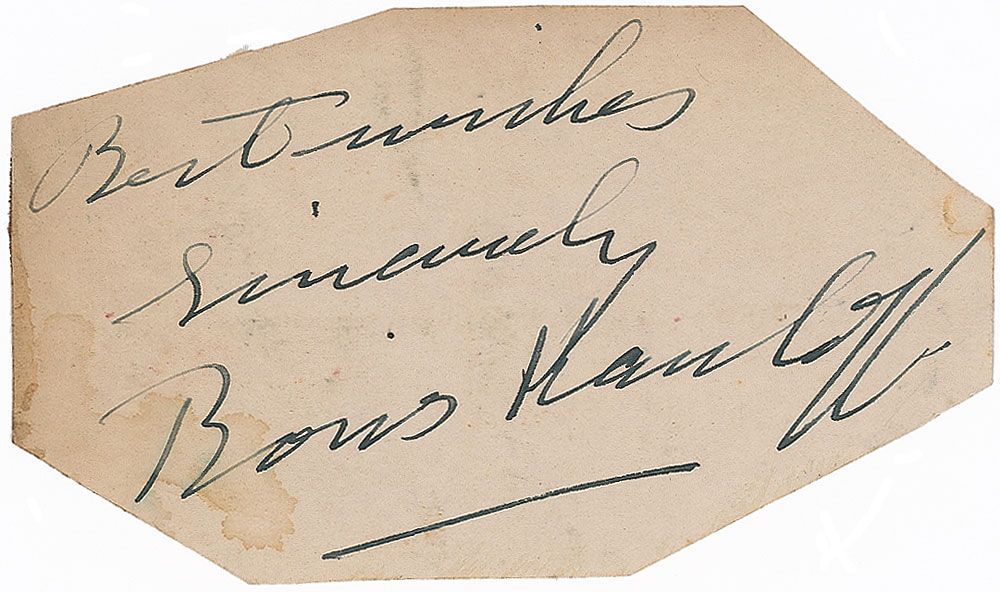 Best wishes
Sincerely
Boris Karloff